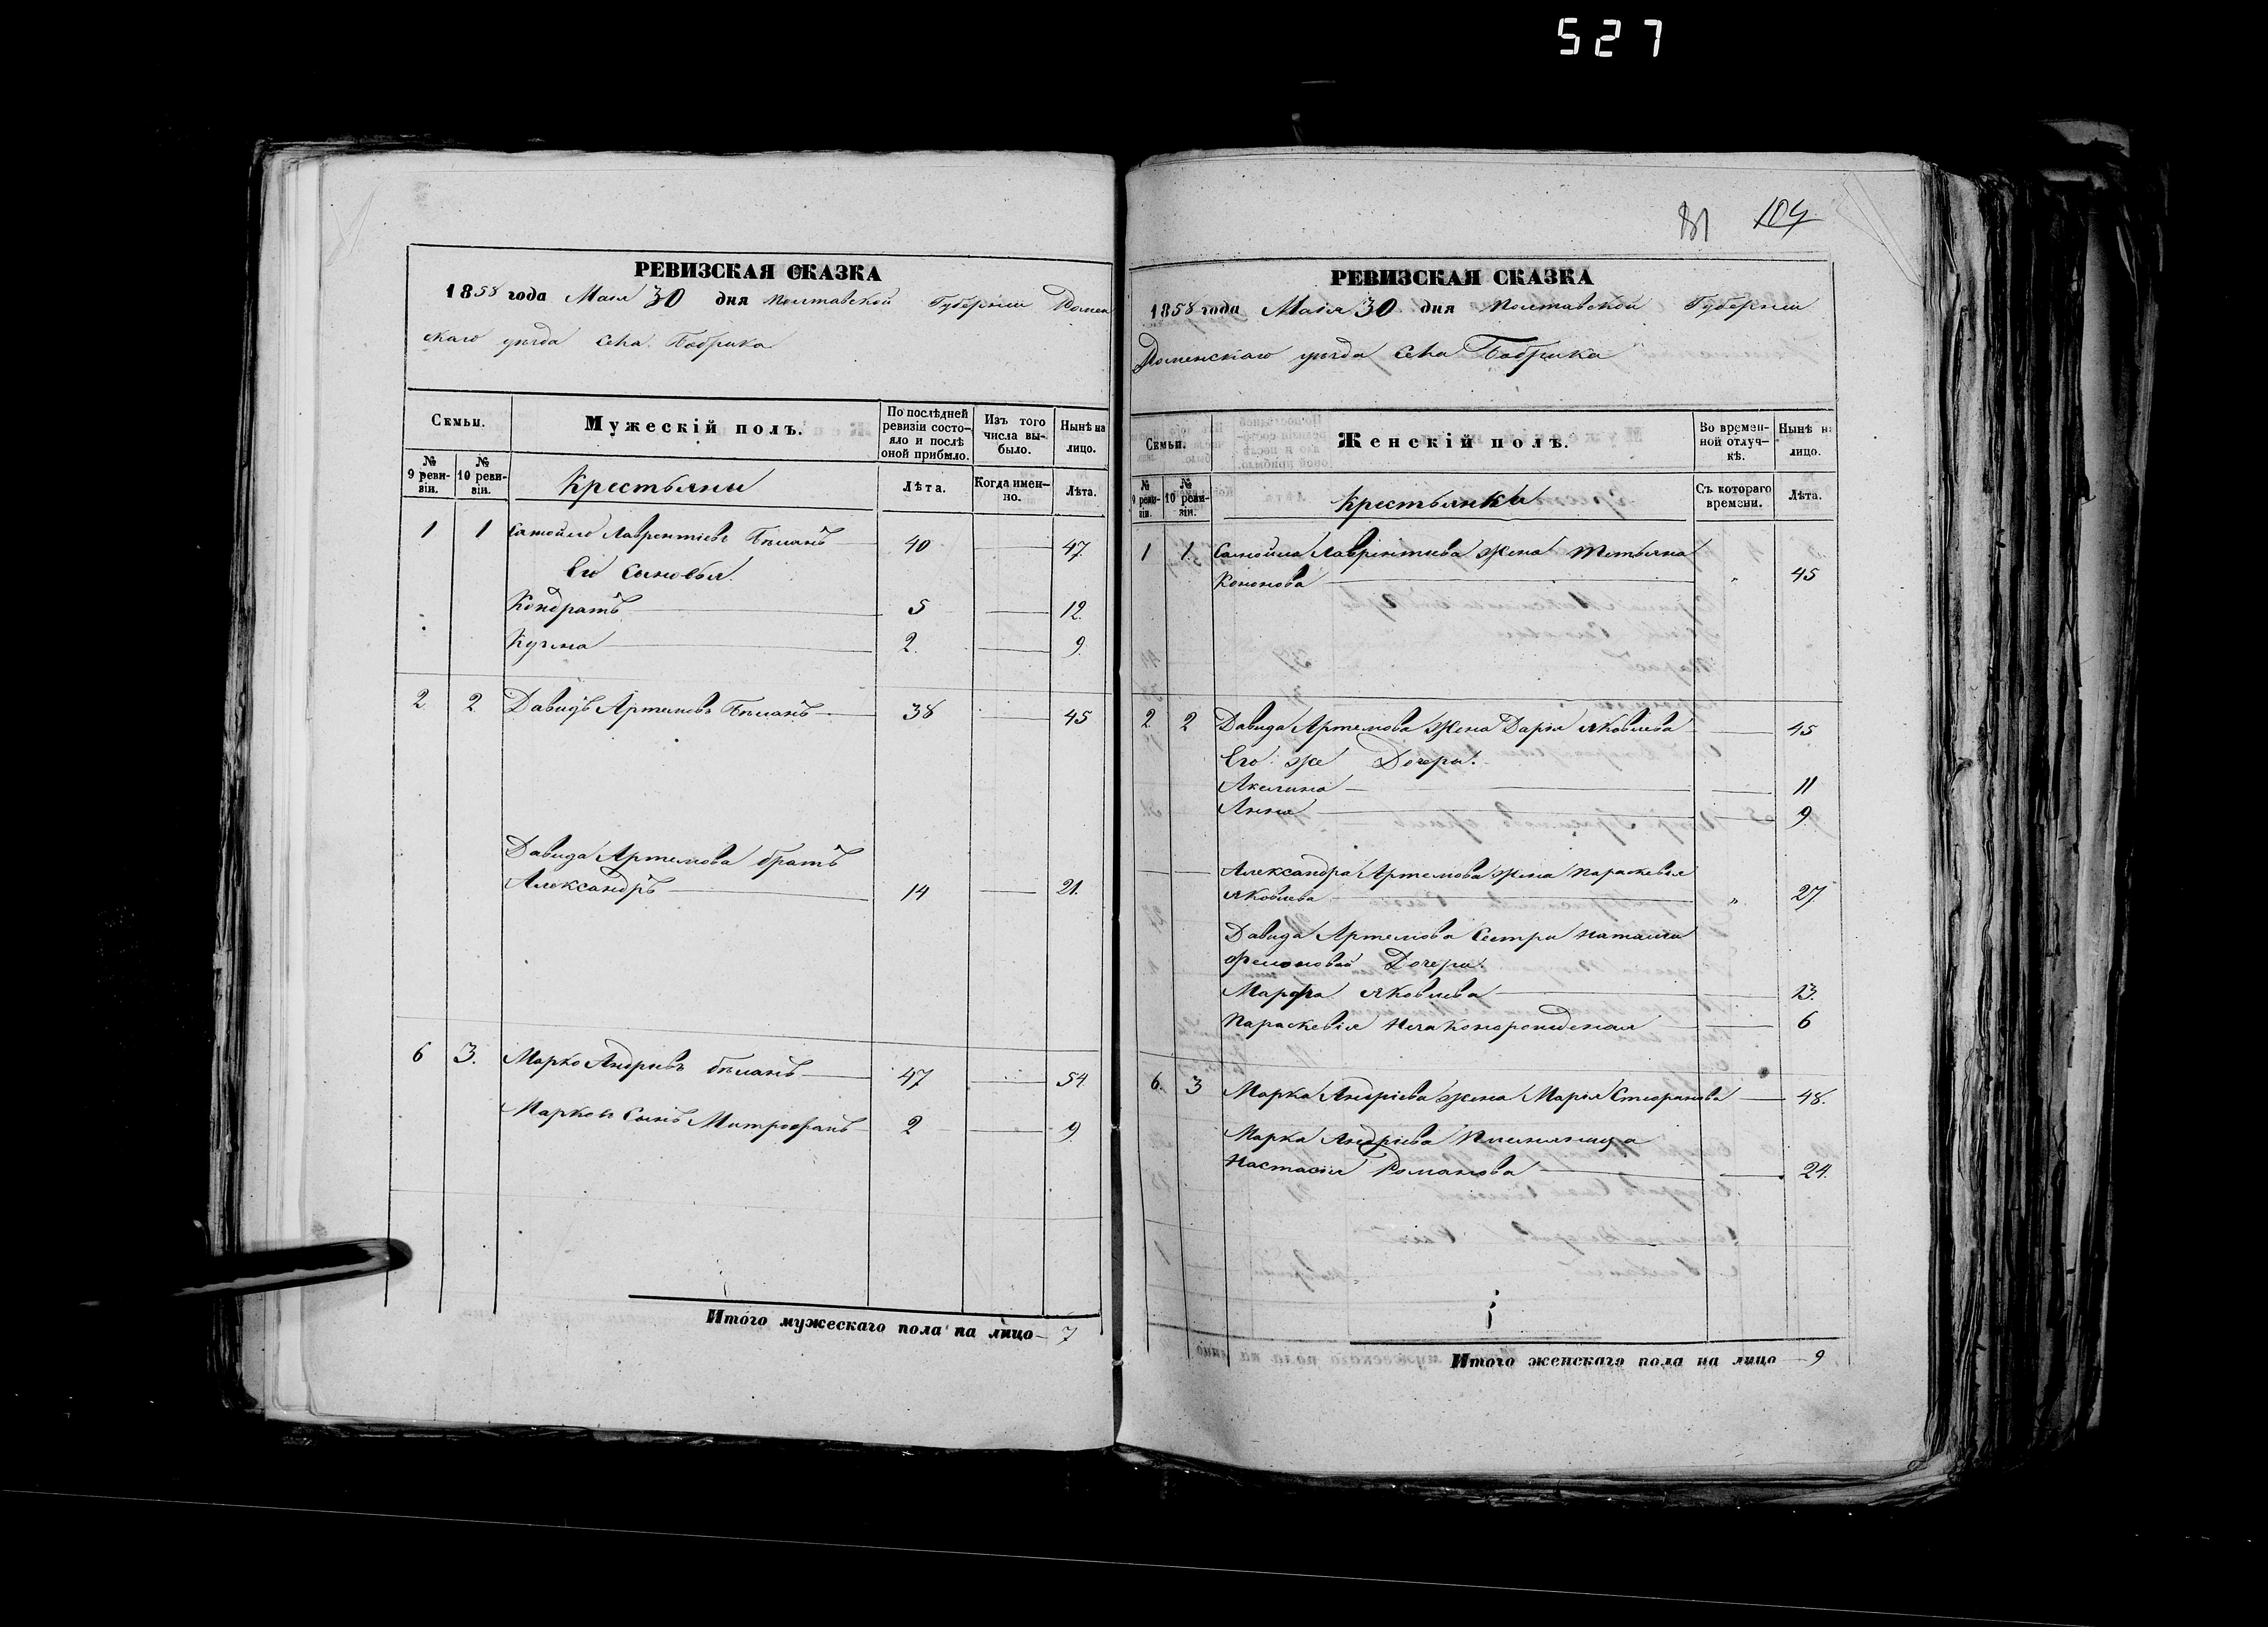 527
РЕВИЗСКАЯ СКАЗКА
1858 года Маія 30 дня Полтавской Губерніи Ромен
скаго уезда села Бобрика
Семьи.
Мужескій полъ.
По послѣдней ревизіи состояло и послѣ оной прибыло.
Изъ того числа выбыло.
Нынѣ на лицо.
№ 9 ревизіи.
№ 10 ревизіи.
Крестьяны
Лѣта.
Когда именно.
Лѣта.
1 1 Самойло Лаврентіевъ Бѣланъ 40 47
Его Сыновья
Кондратъ 5 12
Кузма 2 9
2 2 Давидъ Артемовъ Бѣланъ 38 45
Давида Артемова братъ
Александръ 14 21
6 3. Марко Андріевъ бѣланъ 47 54
Марковъ Сынъ Митрофанъ 2 9
Итого мужескаго пола на лицо 7
81 104
РЕВИЗСКАЯ СКАЗКА
1858 года Маія 30 дня Полтавской Губерніи
Роменскаго уезда села Бобрика
Семьи.
Женскій полъ.
Во временной отлучкѣ.
Нынѣ на лицо.
№ 9 ревизіи.
№ 10 ревизіи.
Крестьянки
Съ котораго времени.
Лѣта.
1 1. Самойла Лаврентиева жена Тетьяна
Кононова „ 45
2. 2 Давида Артемова Жена Дарія Яковлева 45
Его же Дочери.
Акелина 11
Анна 9
Александра Артемова жена Параскевія
Яковлева „ 27
Давида Артемова Сестри Наталіи
Дочери.
Марфа Яковлева 13.
Параскевія Незаконорожденая 6
6. 3 Марка Андріева жена Марія Стефанова 48.
Марка Андріева Племяница
Настасія Романова 24.
Итого женскаго пола на лицо 9